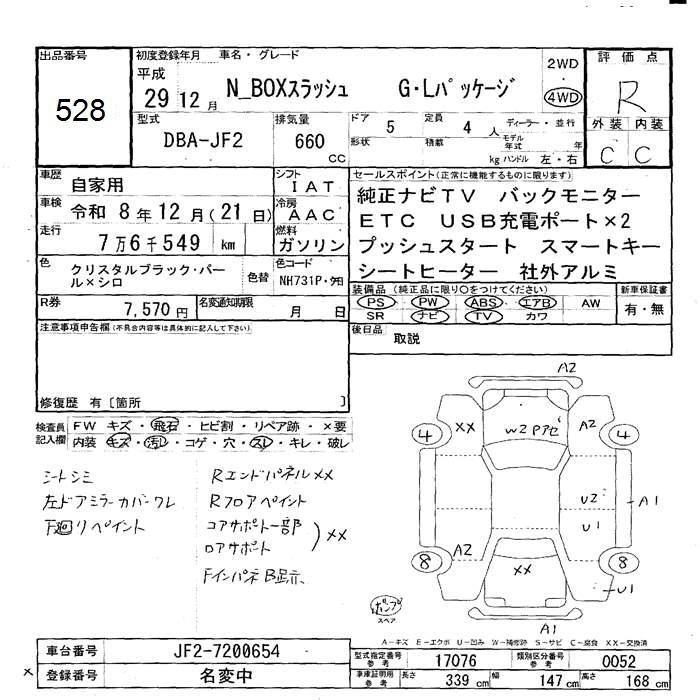 出品番号
528
初度登録年月 車名・グレード
平成
29 12 月 N_BOXスラッシュ G・Lパッケージ
2WD
4WD
評価点
R
外装 内装
C C
型式
DBA-JF2
排気量
660 cc
ドア 5 定員 4 人
形状 積載 kg
ディーラー・並行
モデル年式 年
ハンドル 左・右
車歴 自家用
車検 令和 8年 12月(21日)
走行 7万6千549 km
シフト IAT
冷房 AAC
燃料 ガソリン
色 クリスタルブラック・パール×シロ
色替
色コード NH731P・知
R券 7,570円
名変通知期限 月 日
セールスポイント(正常に機能するものに限ります)
純正ナビTV バックモニター
ETC USB充電ポート×2
プッシュスタート スマートキー
シートヒーター 社外アルミ
装備品 (純正品に限り〇をつけてください)
PS PW ABS エアB AW
SR ナビ TV カワ
新車保証書
有・無
後日品 取説
注意事項申告欄(不具合内容等は具体的に記入して下さい)
修復歴 有〔箇所 〕
検査員記入欄
FW キズ・飛石・ヒビ割・リペア跡・×要
内装 キズ・汚レ・コゲ・穴・スレ・キレ・破レ
シートシミ
左ドアミラーカバーワレ
下廻りペイント
Rエンドパネル××
Rフロアペイント
コアサポート一部
ロアサポート
××
FインパネB跡示
A2
4 ×× W2PアセA2 4
U2
A1
U1
8 A2 ×× 8
U1
ポンプ
スペア
A1
A-キズ E-エクボ U-凹み W-補修跡 S-サビ C-腐食 XX-交換済
車台番号 JF2-7200654
× 登録番号 名変中
型式指定番号 参考 17076
類別区分番号 参考 0052
車庫証明用 参考 長さ 339 cm 幅 147 cm 高さ 168 cm